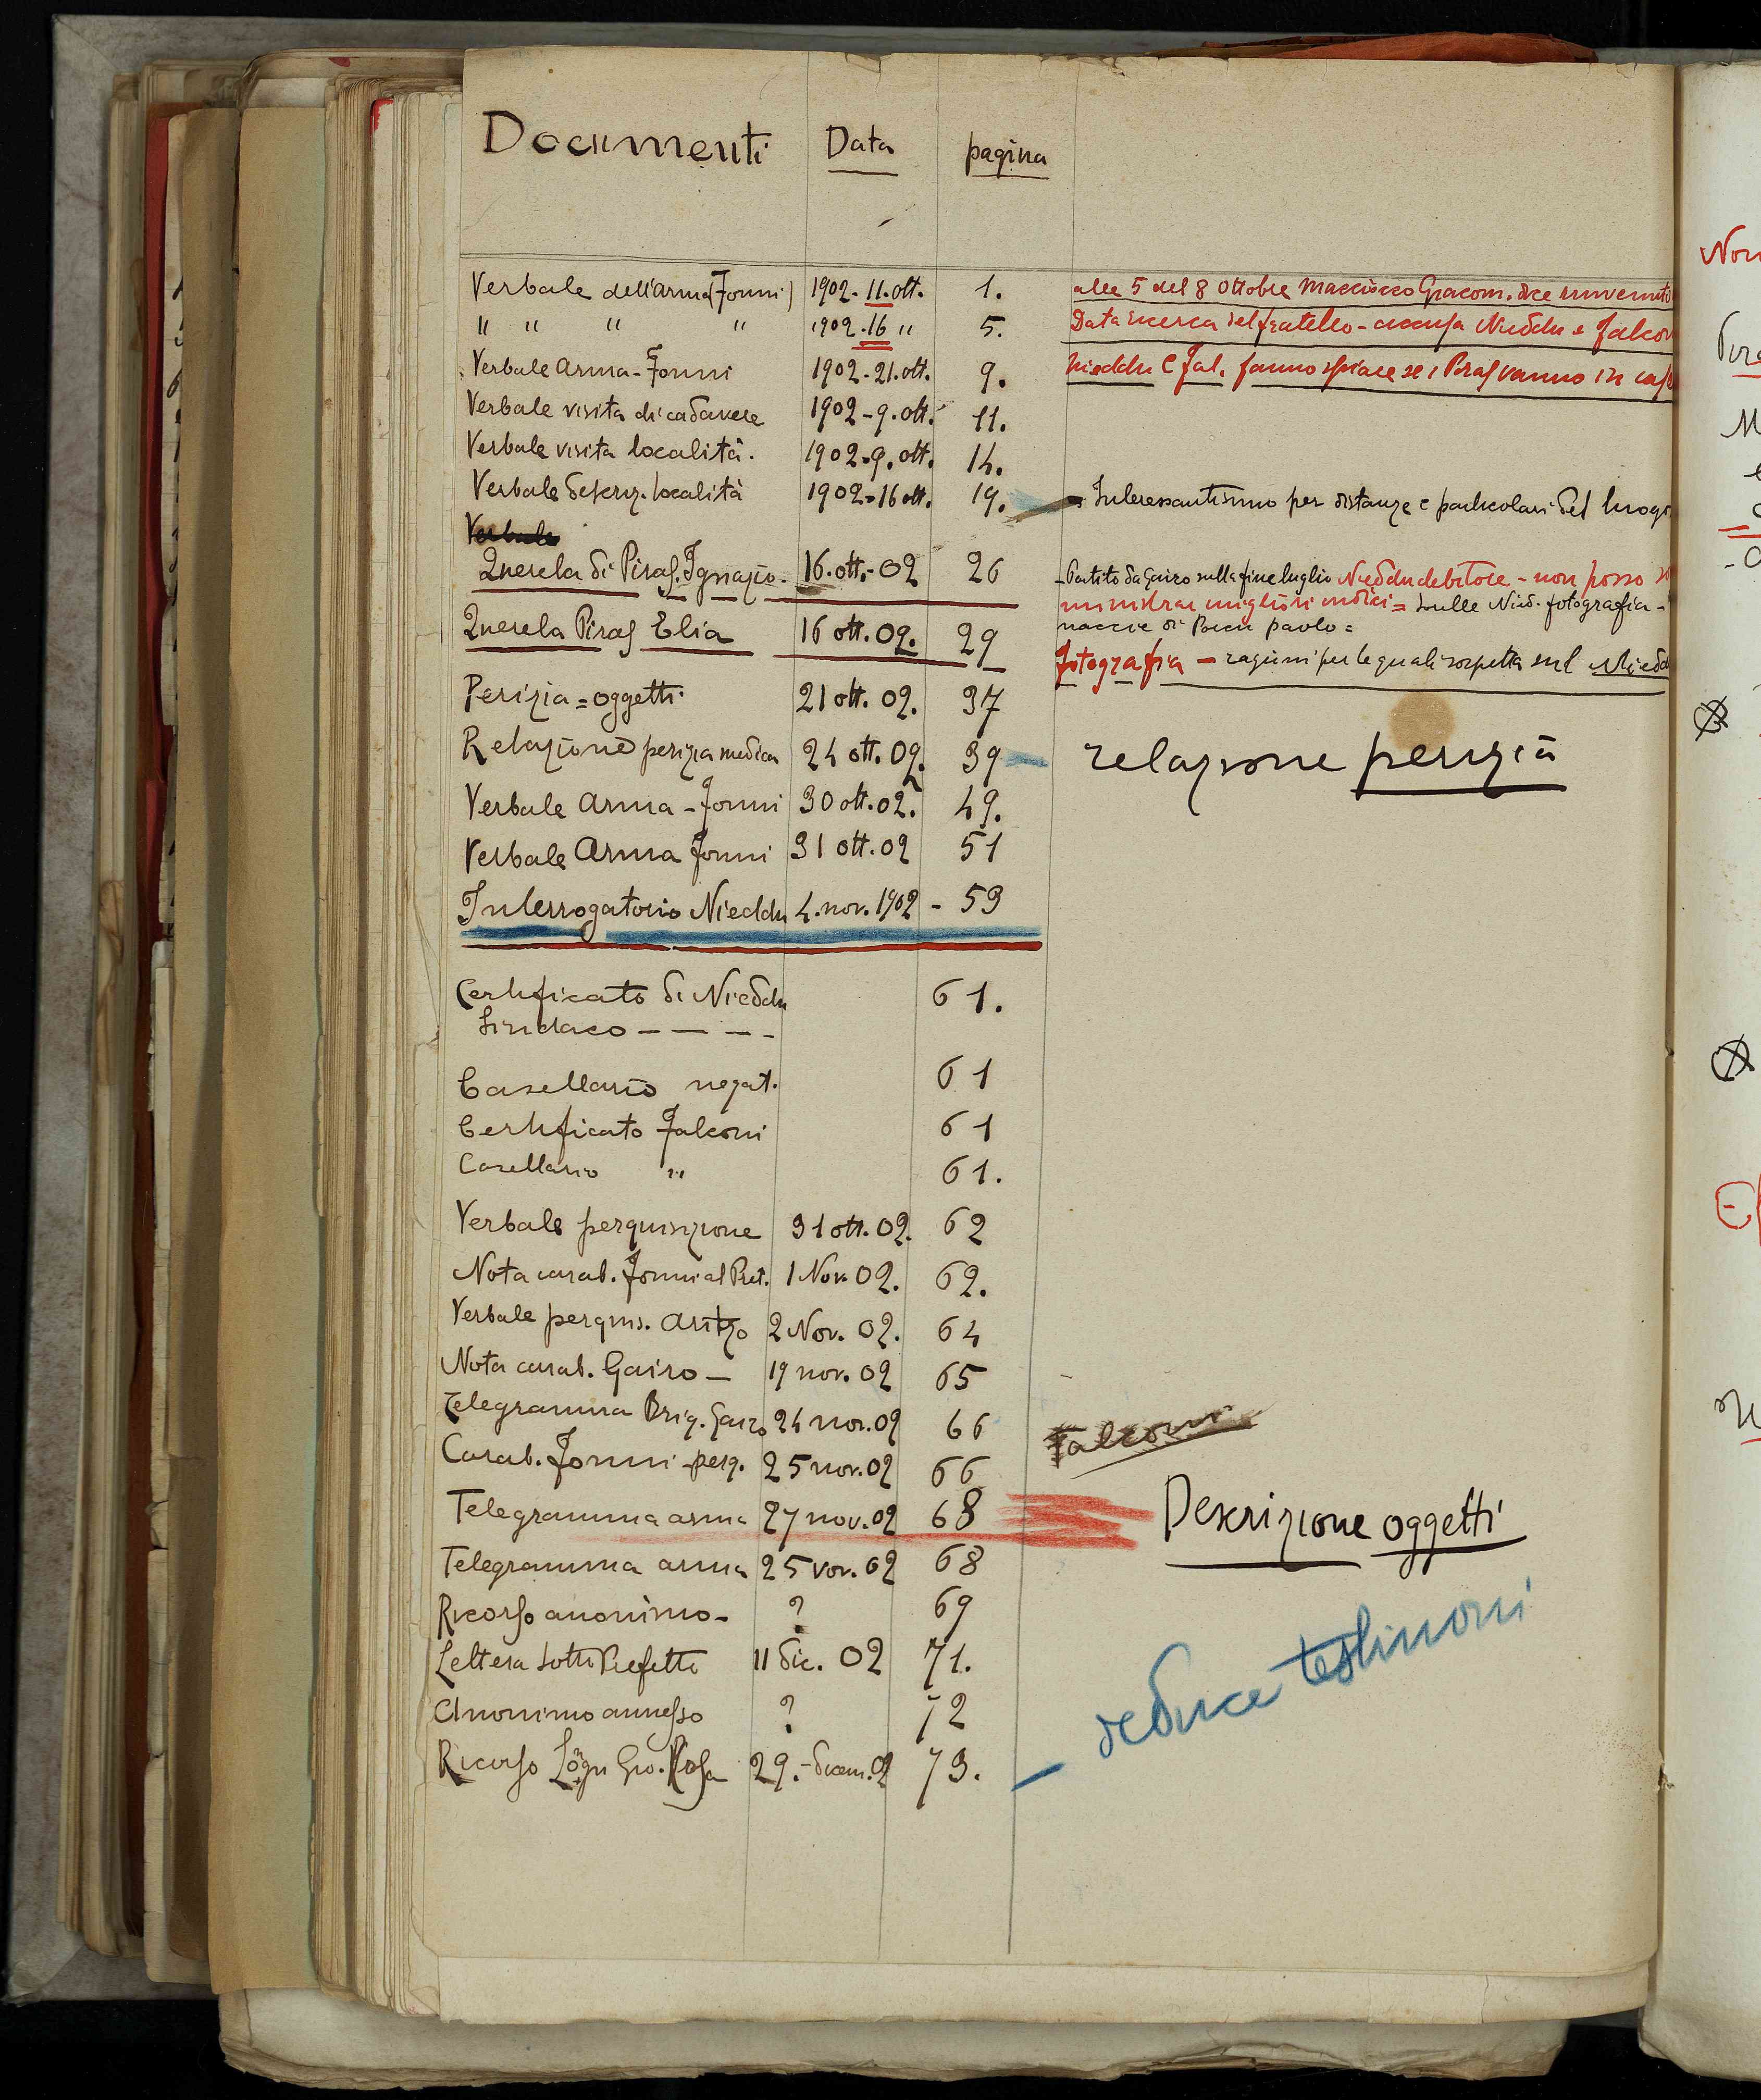 Documenti Data pagina
Verbale dell'arma (Fonni) 1902 - 11. ott. 1. alle 5 del 8 Ottobre Macciocco Giacom. dice rinvenuto
" " " " 1902 - 16 " 5. Data ricerca del fratello - accusa Nieddu e Falcon
Verbale arma - Fonni 1902 - 21. ott. 9. Nieddu e Fal. fanno spiare se i Piras vanno in cas
Verbale visita di cadavere 1902 - 9. ott. 11.
Verbale visita località. 1902 - 9. ott. 14.
Verbale descriz. località 1902 - 16 ott. 19. Interessantissimo per distanze e particolari del luogo
Verbale
Querela di Piras. Ignazio. 16. ott. - 02 26 - Partito da Gairo sulla fine luglio Nieddu debitore - non posso
ministrar migliori indici = sulle Nied. fotografia -
naccie di paolo =
Querela Piras Elia 16 ott. 02. 29 fotografia - ragioni per le quali sospetta sul Niedd
Perizia = oggetti 21 ott. 02. 37
Relazione perizia medica 24 ott. 02. 39 relazione perizia
Verbale arma - Fonni 30 ott. 02. 49.
Verbale Arma Fonni 31 ott. 02 51
Interrogatorio Nieddu 4. nov. 1902 - 59
Certificato di Nieddu 61.
Sindaco - - - -
Casellario negat. 61
Certificato Falconi 61
Casellario " 61.
Verbale perquisizione 31 ott. 02. 62
Nota carab. Fonni al Pret. 1 Nov. 02. 62.
Verbale perquis. Aritzo 2 Nov. 02. 64
Nota carab. Gairo - 19 nov. 02 65
Telegramma Brig. Gairo 24 nov. 02 66 Falconi
Carab. Fonni - perq. 25 nov. 02 66
Telegramma arma 27 nov. 02 68 Descrizione oggetti
Telegramma arma 25 nov. 02 68
Ricorso anonimo - ? 69
Lettera Sotto Prefetto 11 dic. 02 71.
Anonimo annesso ? 72
Ricorso Gio. Rosa 29. - dicem. 02 73. - deduce testimoni